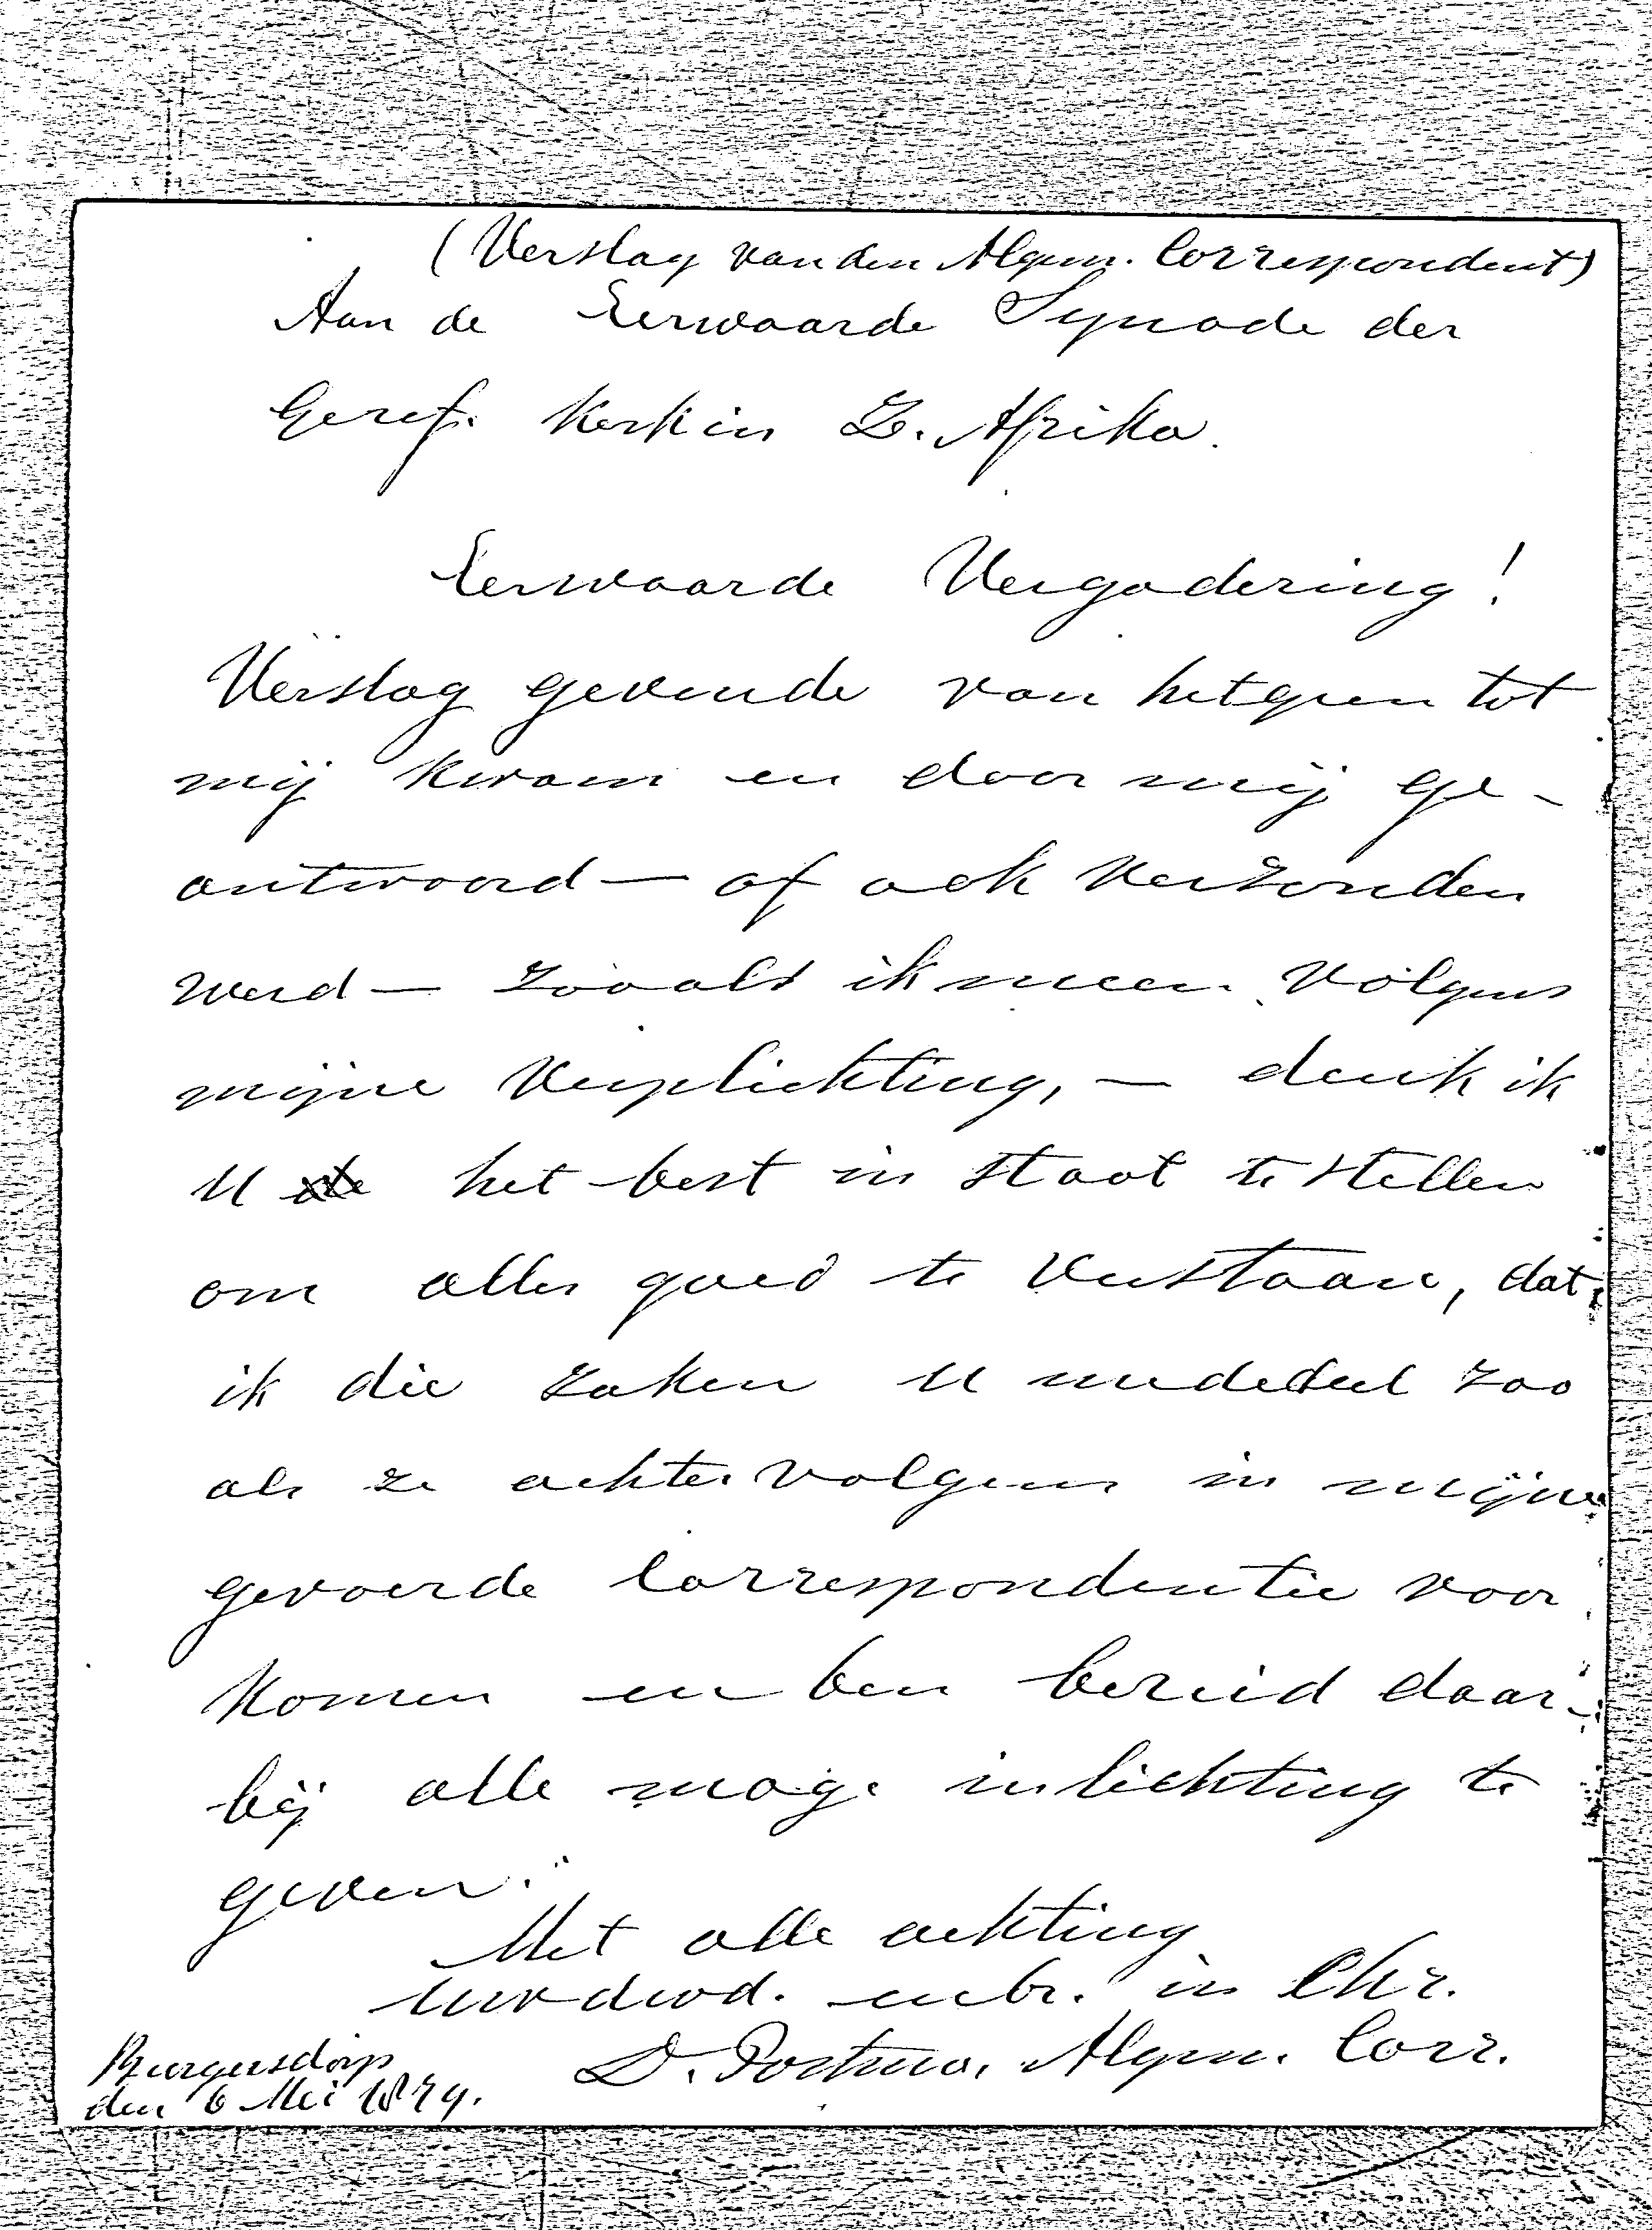 (Verslag van den Algem. Correspondent)
Aan de Eerwaarde Synode der
Geref. Kerk in Z. Afrika.
Eerwaarde Vergadering!
Verslag gevende van hetgeen tot
mij kwam en door mij ge-
antwoord — of ook verzonden
werd — zooals ik meen volgens
mijne verplichting, — denk ik
U het best in staat te stellen
om alles goed te verstaan, dat
ik die zaken U mededeel zoo
als ze achtervolgens in mijne
gevoerde Correspondentie voor
komen en ben bereid daar-
bij alle mog. inlichting te
geven.
Met alle achting
Uw dwd. in Chr.
D. Postma, Algem. Corr.
Burgersdorp
den 6 Mei 1879.